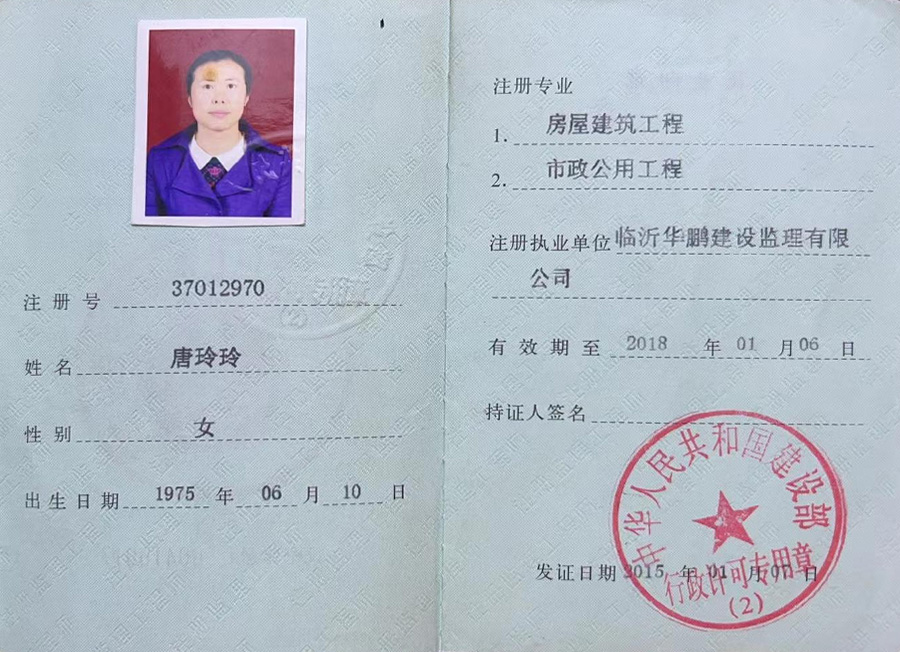 注册号 37012970
姓名 唐玲玲
性别 女
出生日期 1975 年 06 月 10 日
注册专业
1. 房屋建筑工程
2. 市政公用工程
注册执业单位 临沂华鹏建设监理有限
公司
有效期至 2018 年 01 月 06 日
持证人签名
中华人民共和国建设部
发证日期 2015 年 01 月 07 日
行政许可专用章
(2)